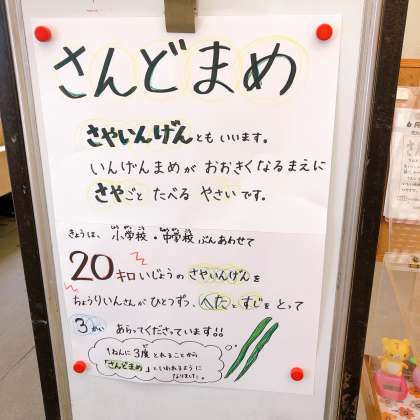 さんどまめ
さやいんげんともいいます。
いんげんまめが おおきくなるまえに
さやごと たべる やさいです。
きょうは、小学校・中学校ぶんあわせて
20キロいじょうのさやいんげんを
ちょうりいんさんがひとつずつ、へたとすじをとって
3かい あらってくださっています!!
1ねんに3度とれることから
「さんどまめ」といわれるように
なりました。
6月